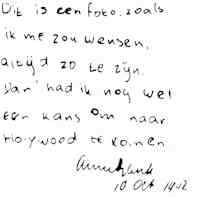 Dit is een foto, zoals
ik me zou wensen,
altijd zo te zijn.
Dan had ik nog wel
een kans om naar
Holywood te komen.
Annefrank
10 Oct. 1942